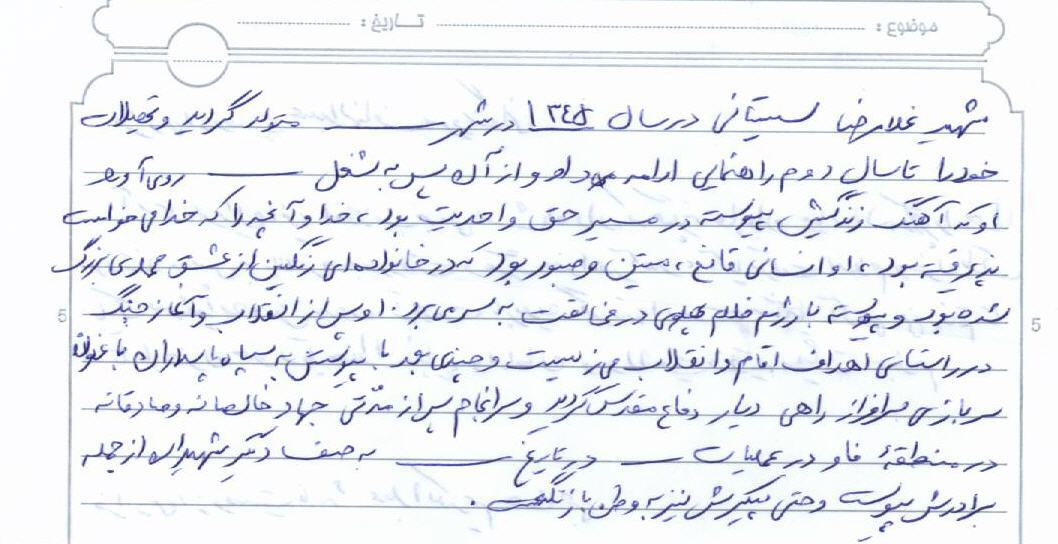 موضوع : تاریخ :
شهید غلامرضا سیستانی در سال ۱۳۴۵ در شهر ــــــ متولد گردید و تحصیلات
خود را تا سال دوم راهنمایی ادامه داد و از آن پس به شغل ــــــ روی آورد
او که آهنگ زندگیش پیوسته در مسیر حق و احدیت بود، خدا و آنچه را که خدا می‌خواست
پذیرفته بود، او انسانی قانع، متین و صبور بود که در خانواده‌ای رنگین از عشق بزرگ
شده بود و پیوسته با رژیم ظالم پهلوی در مخالفت به سر می‌برد. او پس از انقلاب و آغاز جنگ
در راستای اهداف امام و انقلاب می‌زیست و چندی بعد با پیوستن به سپاه پاسداران با عنوان
سربازی سرافراز راهی دیار دفاع مقدس گردید و سرانجام پس از مدتی جهاد خالصانه و صادقانه
در منطقهٔ فاو در عملیات ــــــ در تاریخ ــــــ به صف دیگر شهیدان از جمله
برادرش پیوست و حتی پیکرش نیز به وطن بازنگشت.
5 5